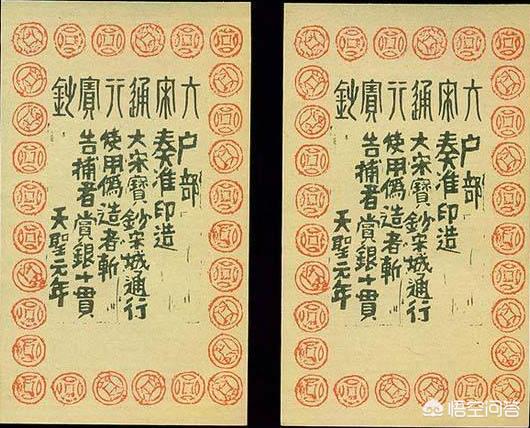 大宋通行寶鈔
户部
奏准印造
大宋寶鈔宋城通行
使用偽造者斬
告捕者賞銀十貫
天聖元年
大宋通行寶鈔
户部
奏准印造
大宋寶鈔宋城通行
使用偽造者斬
告捕者賞銀十貫
天聖元年
悟空问答